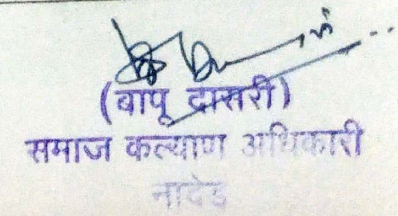 (बापू दासरी)
समाज कल्याण अधिकारी
नादेड